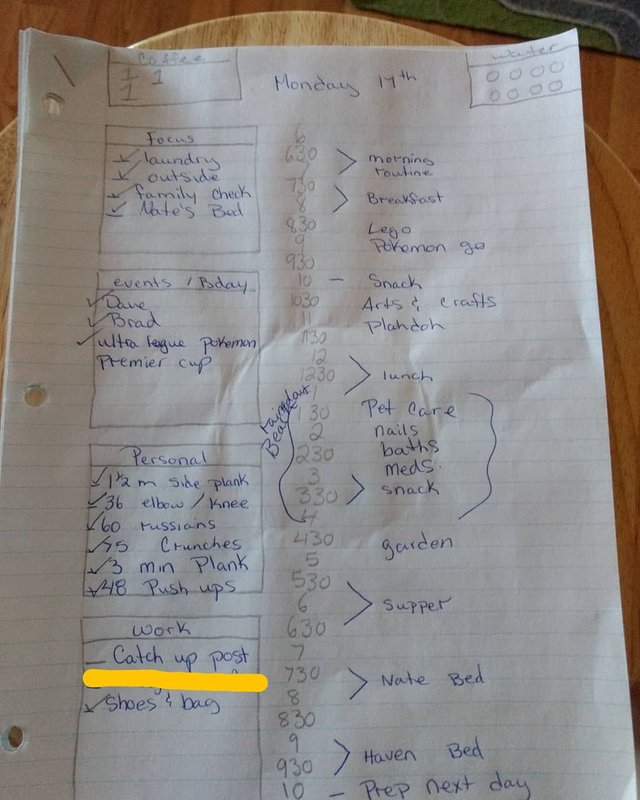 Coffee
1 1
1
Monday 17th
Water
Focus
laundry
outside
family check
Nate's Bed
events / Bday
Dave
Brad
ultra league pokemon
Premier cup
Personal
1½ m side plank
36 elbow / Knee
60 russians
75 Crunches
3 min Plank
48 Push ups
work
Catch up post
Shoes & bag
6
630
7
730
8
830
9
930
10
1030
11
1130
12
1230
1
130
2
230
3
330
4
430
5
530
6
630
7
730
8
830
9
930
10
morning
routine
Breakfast
Lego
Pokemon go
Snack
Arts & crafts
Plahdoh
lunch
Beach
Pet Care
nails
baths
meds
snack
garden
Supper
Nate Bed
Haven Bed
Prep next day